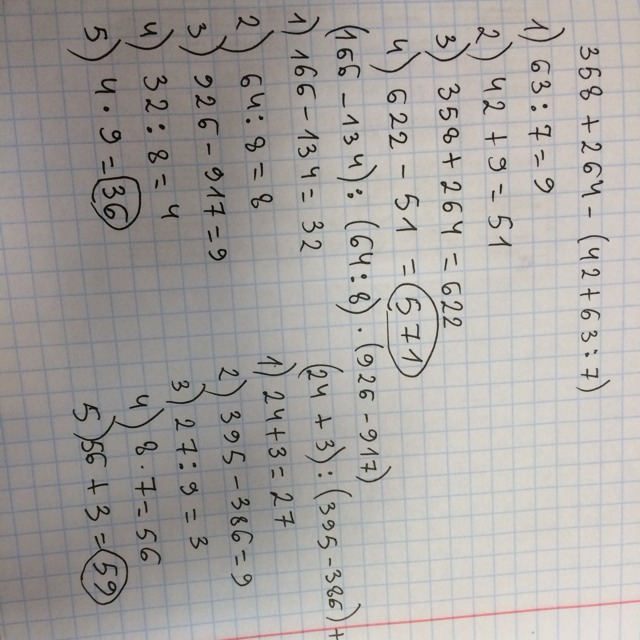 358 + 264 - (42 + 63 : 7)
1) 63 : 7 = 9
2) 42 + 9 = 51
3) 358 + 264 = 622
4) 622 - 51 = 571
(166 - 134) : (64 : 8) · (926 - 917)
1) 166 - 134 = 32
2) 64 : 8 = 8
3) 926 - 917 = 9
4) 32 : 8 = 4
5) 4 · 9 = 36
(24 + 3) : (395 - 386) +
1) 24 + 3 = 27
2) 395 - 386 = 9
3) 27 : 9 = 3
4) 8 · 7 = 56
5) 56 + 3 = 59